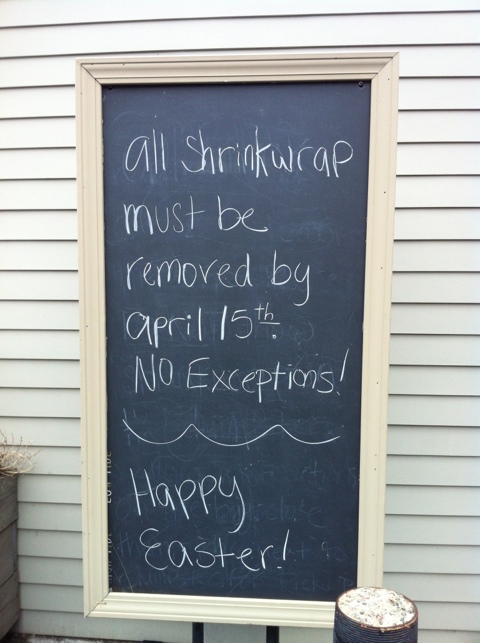 all shrinkwrap
must be
removed by
april 15th.
NO Exceptions!
Happy
Easter!